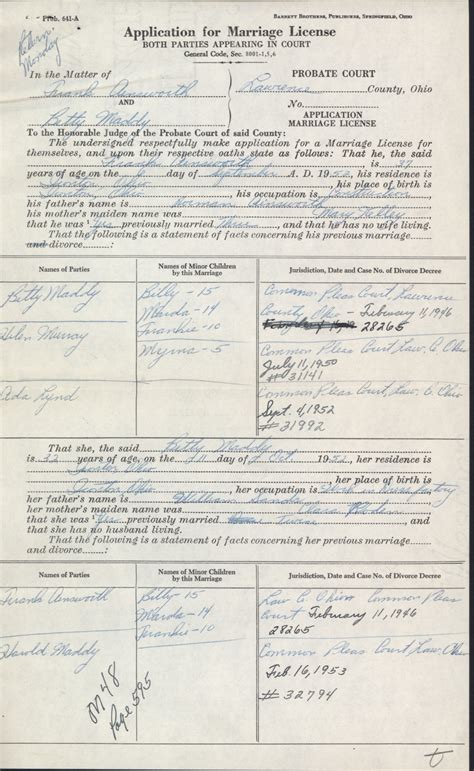 Prob. 641-A
BARRETT BROTHERS, PUBLISHERS, SPRINGFIELD, OHIO
Return Monday
Application for Marriage License
BOTH PARTIES APPEARING IN COURT
General Code, Sec. 8001-1,5,6
In the Matter of
PROBATE COURT
Frank Ainsworth
Lawrence County, Ohio
AND
No.
Betty Maddy
APPLICATION
MARRIAGE LICENSE
To the Honorable Judge of the Probate Court of said County:
The undersigned respectfully make application for a Marriage License for
themselves, and upon their respective oaths state as follows: That he, the said
Frank Ainsworth is 37
years of age on the 6 day of September A. D. 1952, his residence is
Ironton Ohio, his place of birth is
Ironton Ohio, his occupation is Construction
his father's name is Norman Ainsworth
his mother's maiden name was Mary
that he was Yes previously married Three and that he has no wife living.
That the following is a statement of facts concerning his previous marriage
and divorce
Names of Parties
Names of Minor Children by this Marriage
Jurisdiction, Date and Case No. of Divorce Decree
Betty Maddy
Billy - 15
Common Pleas Court, Lawrence
Marda - 14
County Ohio - February 11, 1946
Frankie - 10
28265
Helen Murray
Myrna - 5
Common Pleas Court, Law. C. Ohio
July 11, 1950
# 31141
Common Pleas Court, Law. C. Ohio
Sept. 4, 1952
# 31992
That she, the said Betty Maddy
is 32 years of age, on the day of Oct 1952, her residence is
Ironton Ohio
, her place of birth is
Ironton Ohio, her occupation is
her father's name is William
her mother's maiden name was Clara
that she was Yes previously married Twice and
that she has no husband living.
That the following is a statement of facts concerning her previous marriage
and divorce
Names of Parties
Names of Minor Children by this Marriage
Jurisdiction, Date and Case No. of Divorce Decree
Frank Ainsworth
Billy - 15
Law C. Ohio Common Pleas
Marda - 14
Court February 11, 1946
Frankie - 10
28265
Harold Maddy
Common Pleas Court, Law. Ohio
Feb. 16, 1953
# 32794
M 48
Page 595